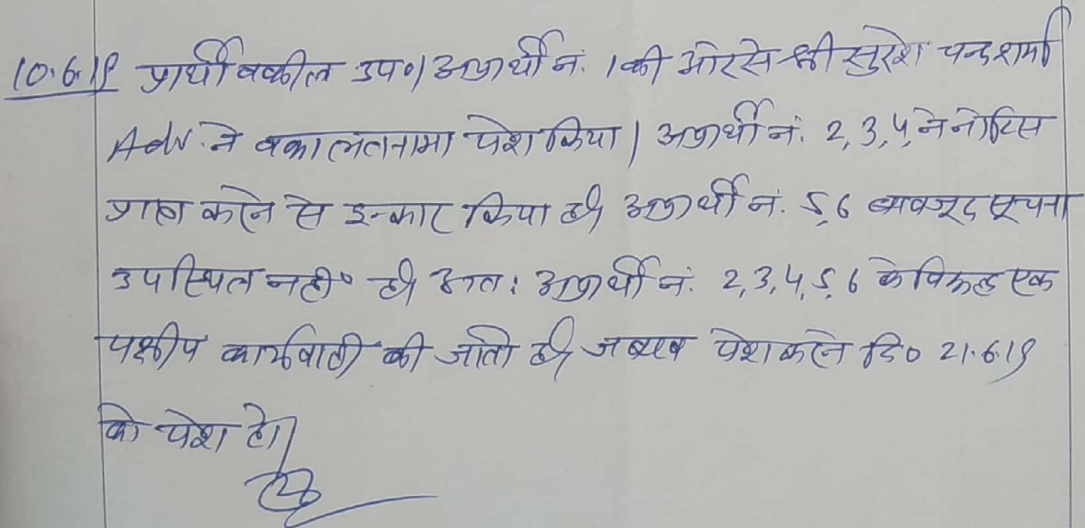 10.6.19 प्रार्थी वकील उप०। अप्रार्थी नं. 1 की ओर से श्री सुरेश चन्द शर्मा
Adv. ने वकालतनामा पेश किया। अप्रार्थी नं. 2,3,4, ने नोटिस
प्राप्त करने से इन्कार किया है। अप्रार्थी नं. 5,6 बावजूद सूचना
उपस्थित नहीं है। अतः अप्रार्थी नं. 2,3,4,5,6 के विरूद्ध एक
पक्षीय कार्यवाही की जाती है। जवाब पेश करने दि० 21.6.19
को पेश हो।